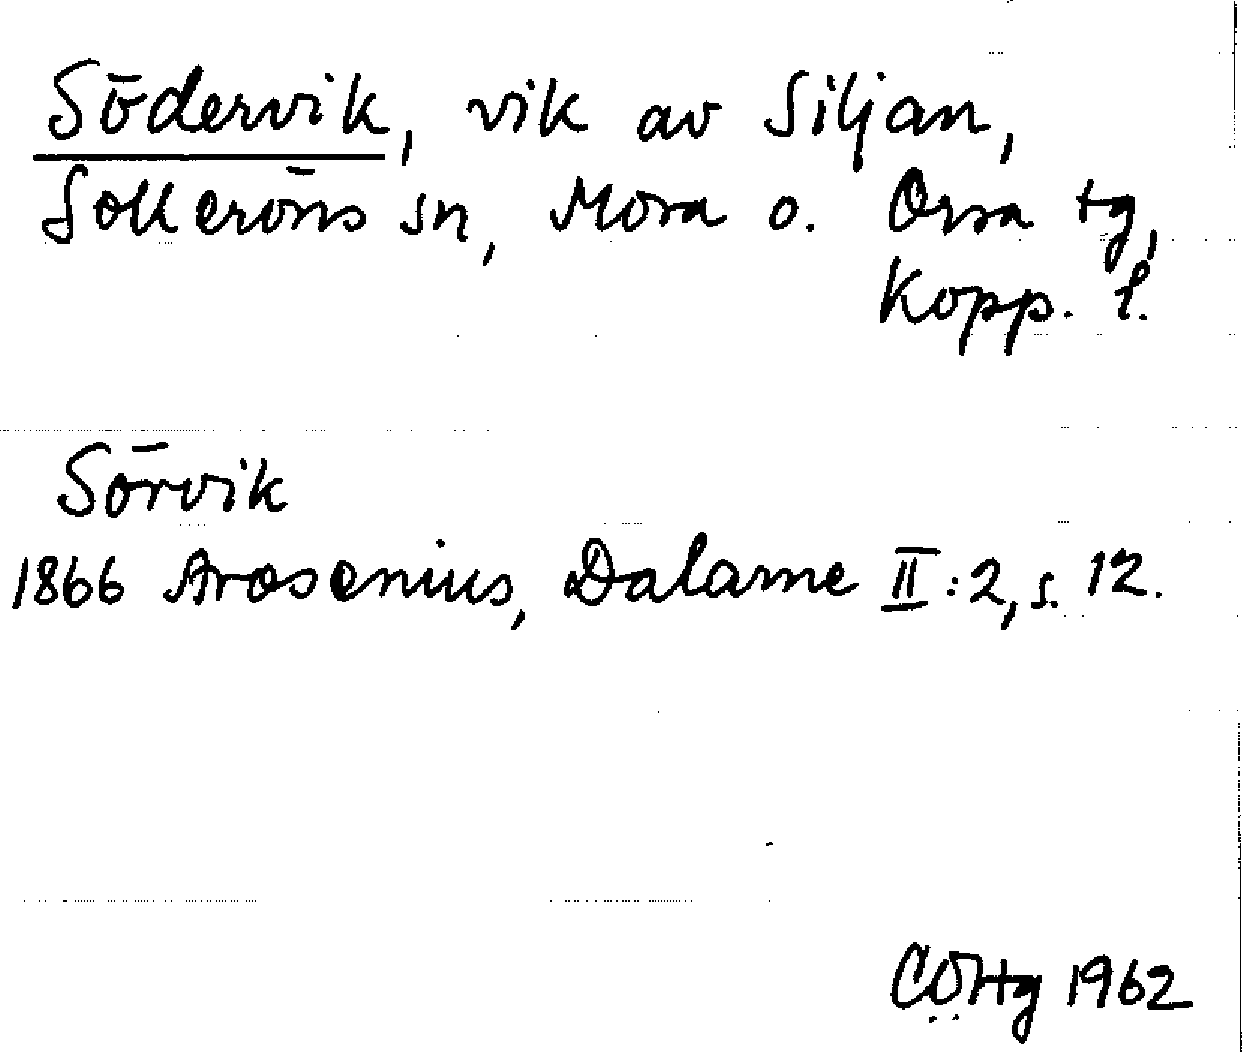 Södervik, vik av Siljan,
Solleröns sn, Mora o. Orsa tg,
Kopp. l.
Sörvik
1866 Arosenius, Dalarne II:2, s. 12.
1962